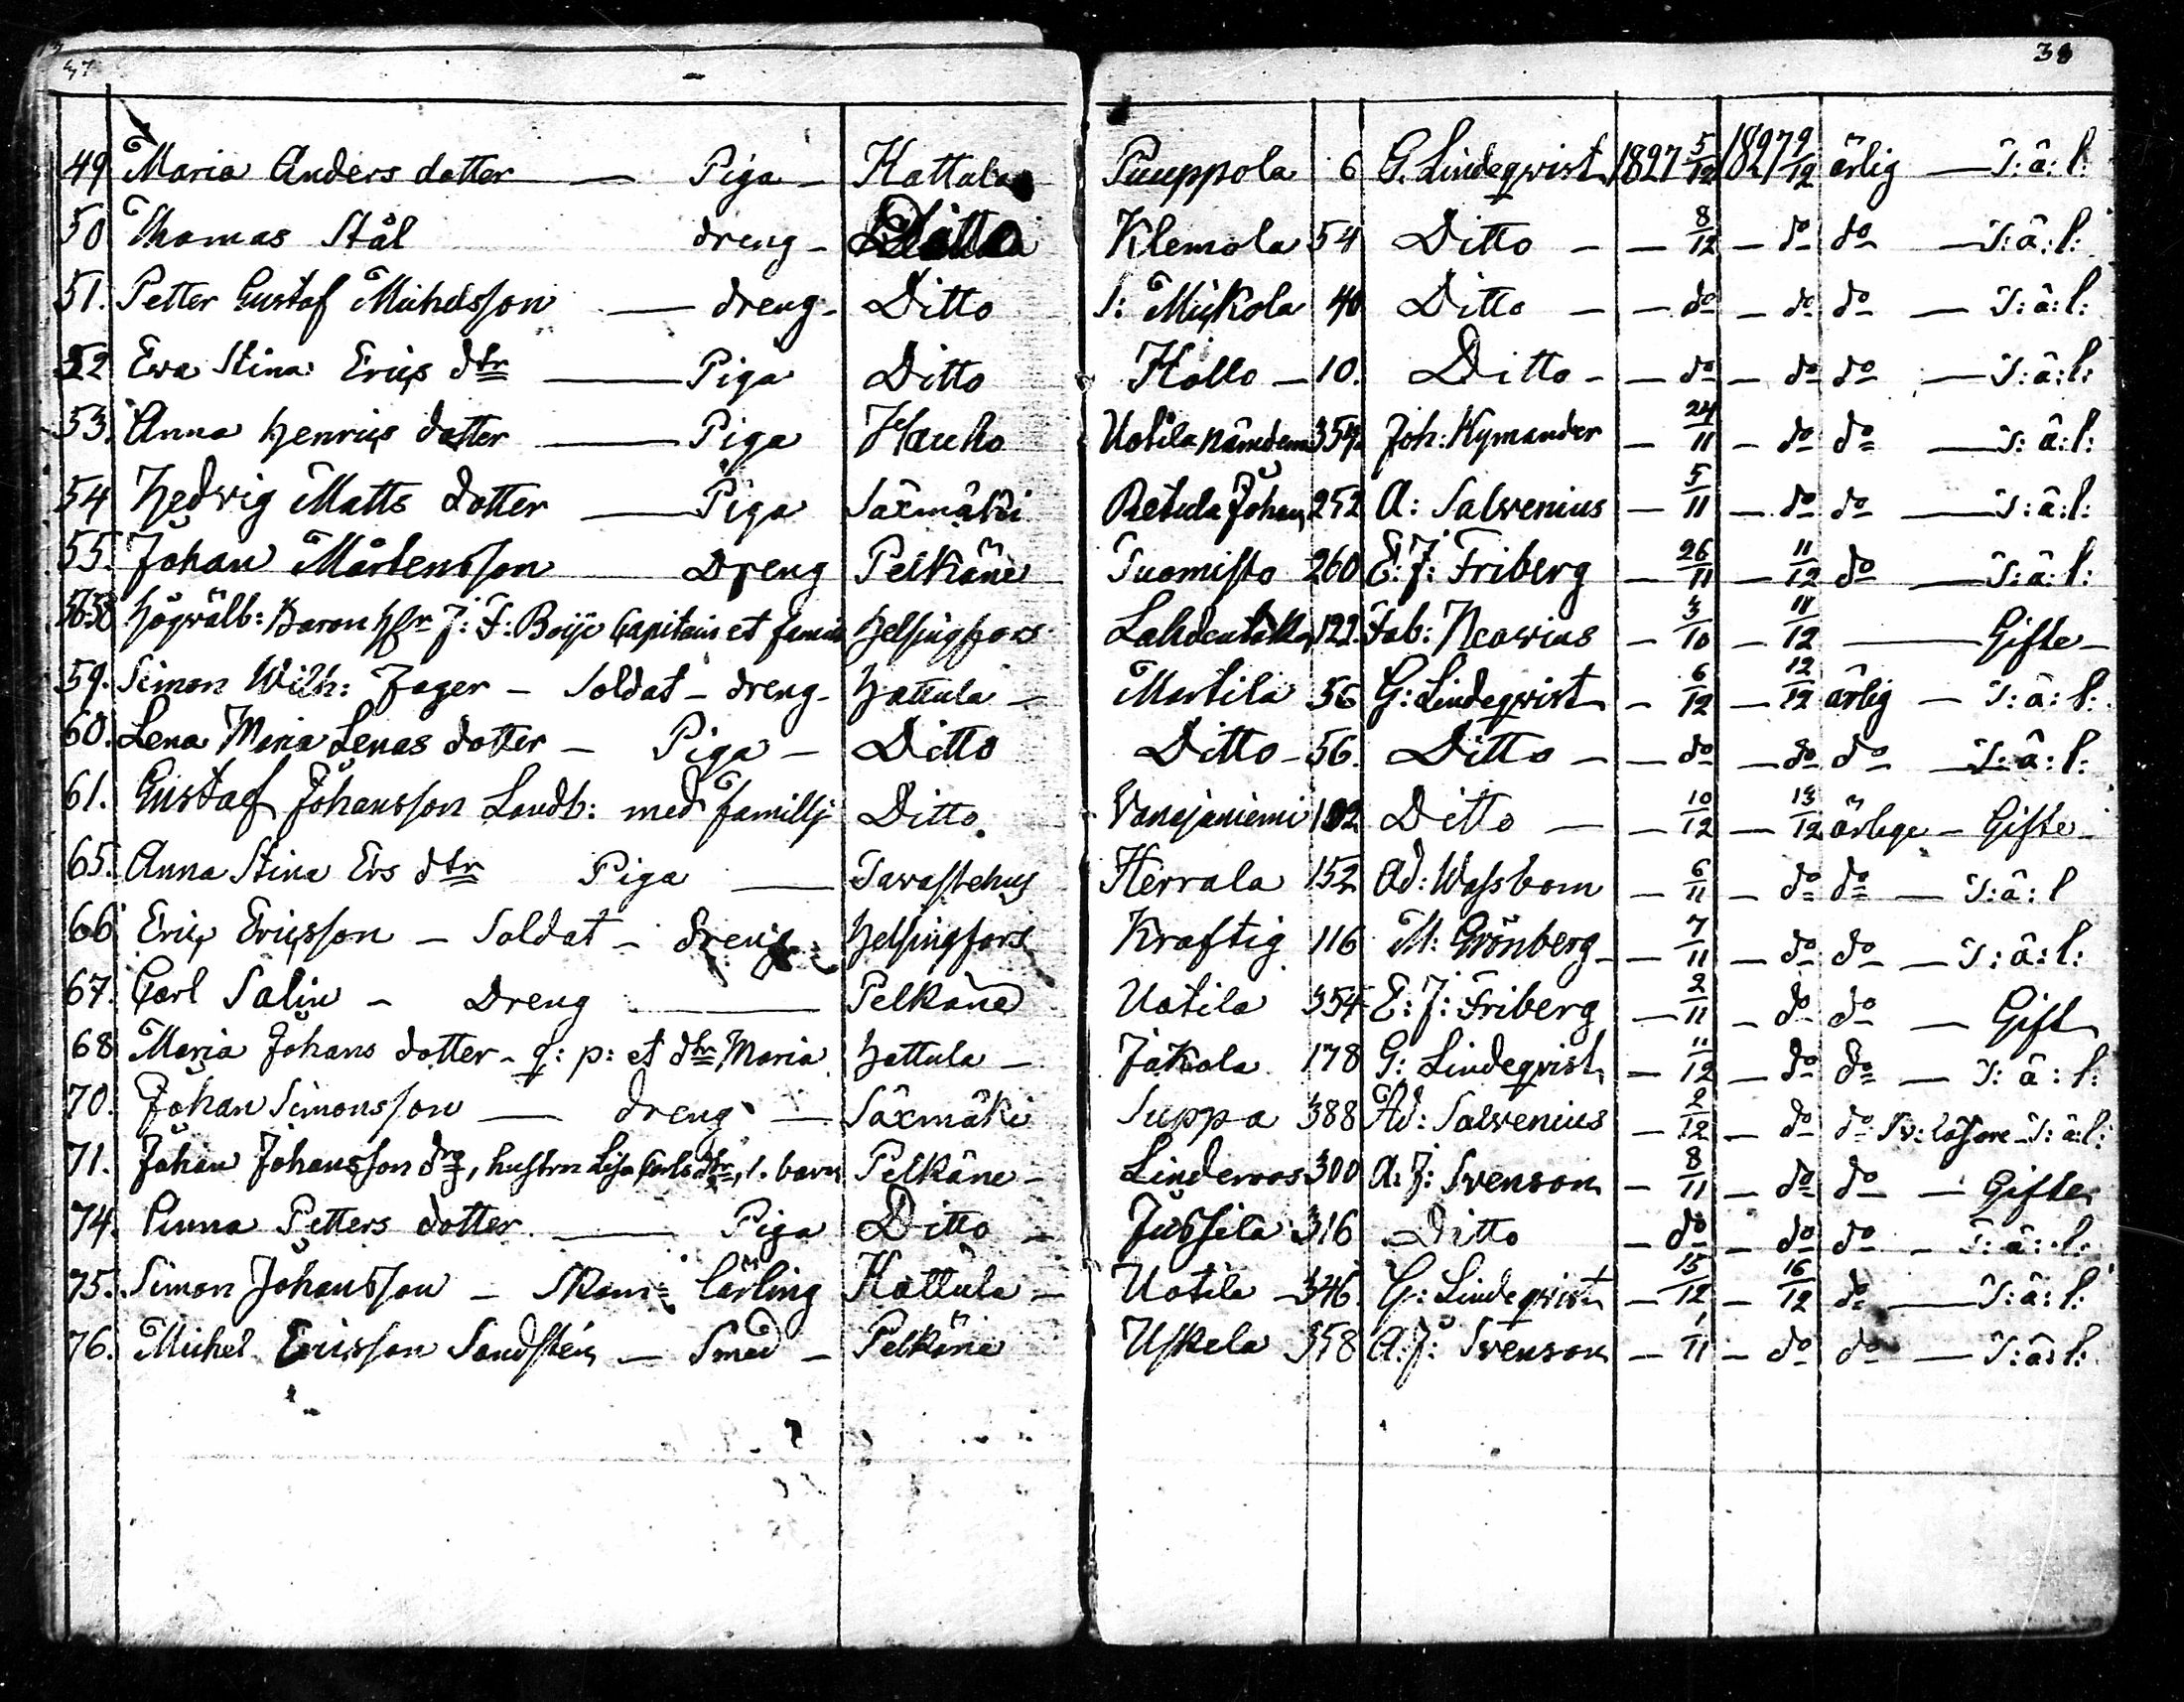 37
38
49 Maria Anders dotter — Piga — Hattula Puuppola 6 G. Lindeqvist 1827 5/12 1827 9/12 ärlig — T: ä: l:
50 Thomas Stål dreng — Ditto Klemola 54 Ditto — — 8/12 — do do — T: ä: l:
51. Petter Gustaf Michelsson — dreng — Ditto Mickola 40 Ditto — — do — do do — T: ä: l:
52 Ewa Stina Erics dtr — Piga Ditto Hollo — 10. Ditto — — do — do do — T: ä: l:
53. Anna Henrics dotter — Piga Hauho Uotila 354. Joh: Kymander — 24/11 — do do — T: ä: l:
54 Hedvig Matts dotter — Piga Säxmäki Retula Johan 252 A: Salvenius — 5/11 — do do — T: ä: l:
55. Johan Mårtensson Dreng Pelkäne Tuomisto 260 E: J: Friberg — 26/11 — 11/12 do — T: ä: l:
56.58 Högvälb: Baron Hr J: F: Boije Capitain et famili Helsingfors 122. Fab: Neovius — 3/10 — 11/12 — Gifte —
59. Simon Wilh: Jager — Soldat — dreng — Hattula — Martila 56 G: Lindeqvist — 6/12 — 12/12 ärlig — T: ä: l:
60. Lena Maria Lenas dotter — Piga — Ditto Ditto — 56. Ditto — — do — do do — T: ä: l:
61. Gustaf Johansson Landb: med familj Ditto. Vanajaniemi 102 Ditto — — 10/12 — 13/12 ärlige — Gifte —
65. Anna Stina Ers dtr Piga — Tavastehus Herrala 152 Ad: Wassbom — 6/11 — do do — T: ä: l
66 Eric Ericsson — Soldat — dreng Helsingfors Kraftig 116 M: Grönberg — — 7/11 — do do — T: ä: l:
67. Carl Salin — Dreng — Pelkäne Uotila 354 E: J: Friberg — 2/11 — do do — Gift
68 Maria Johans dotter — q: p: et dtr Maria Hattula — Jakola 178 G: Lindeqvist — 11/12 — do do — T: ä: l:
70. Johan Simonsson — dreng — Säxmäki Suppa 388 Ad: Salvenius — 2/12 — do do Sv: läsare — T: ä: l:
71. Johan Johansson drg, hustrn Lisa Carls dtr, 1. barn Pelkäne — Linderoos 300 A: J: Svenson — 8/11 — do do — Gifte
74. Anna Petters dotter — Piga Ditto — Jussila 316 Ditto — do — do do — T: ä: l:
75. Simon Johansson — Skom: Lärling Hattula — Uotila — 346. G: Lindeqvist — 15/12 — 16/12 do — T: ä: l:
76. Michel Ericsson Sandstén — Smed — Pelkäne Uskela 358 A: J: Svenson — 1/11 — do do — T: ä: l: